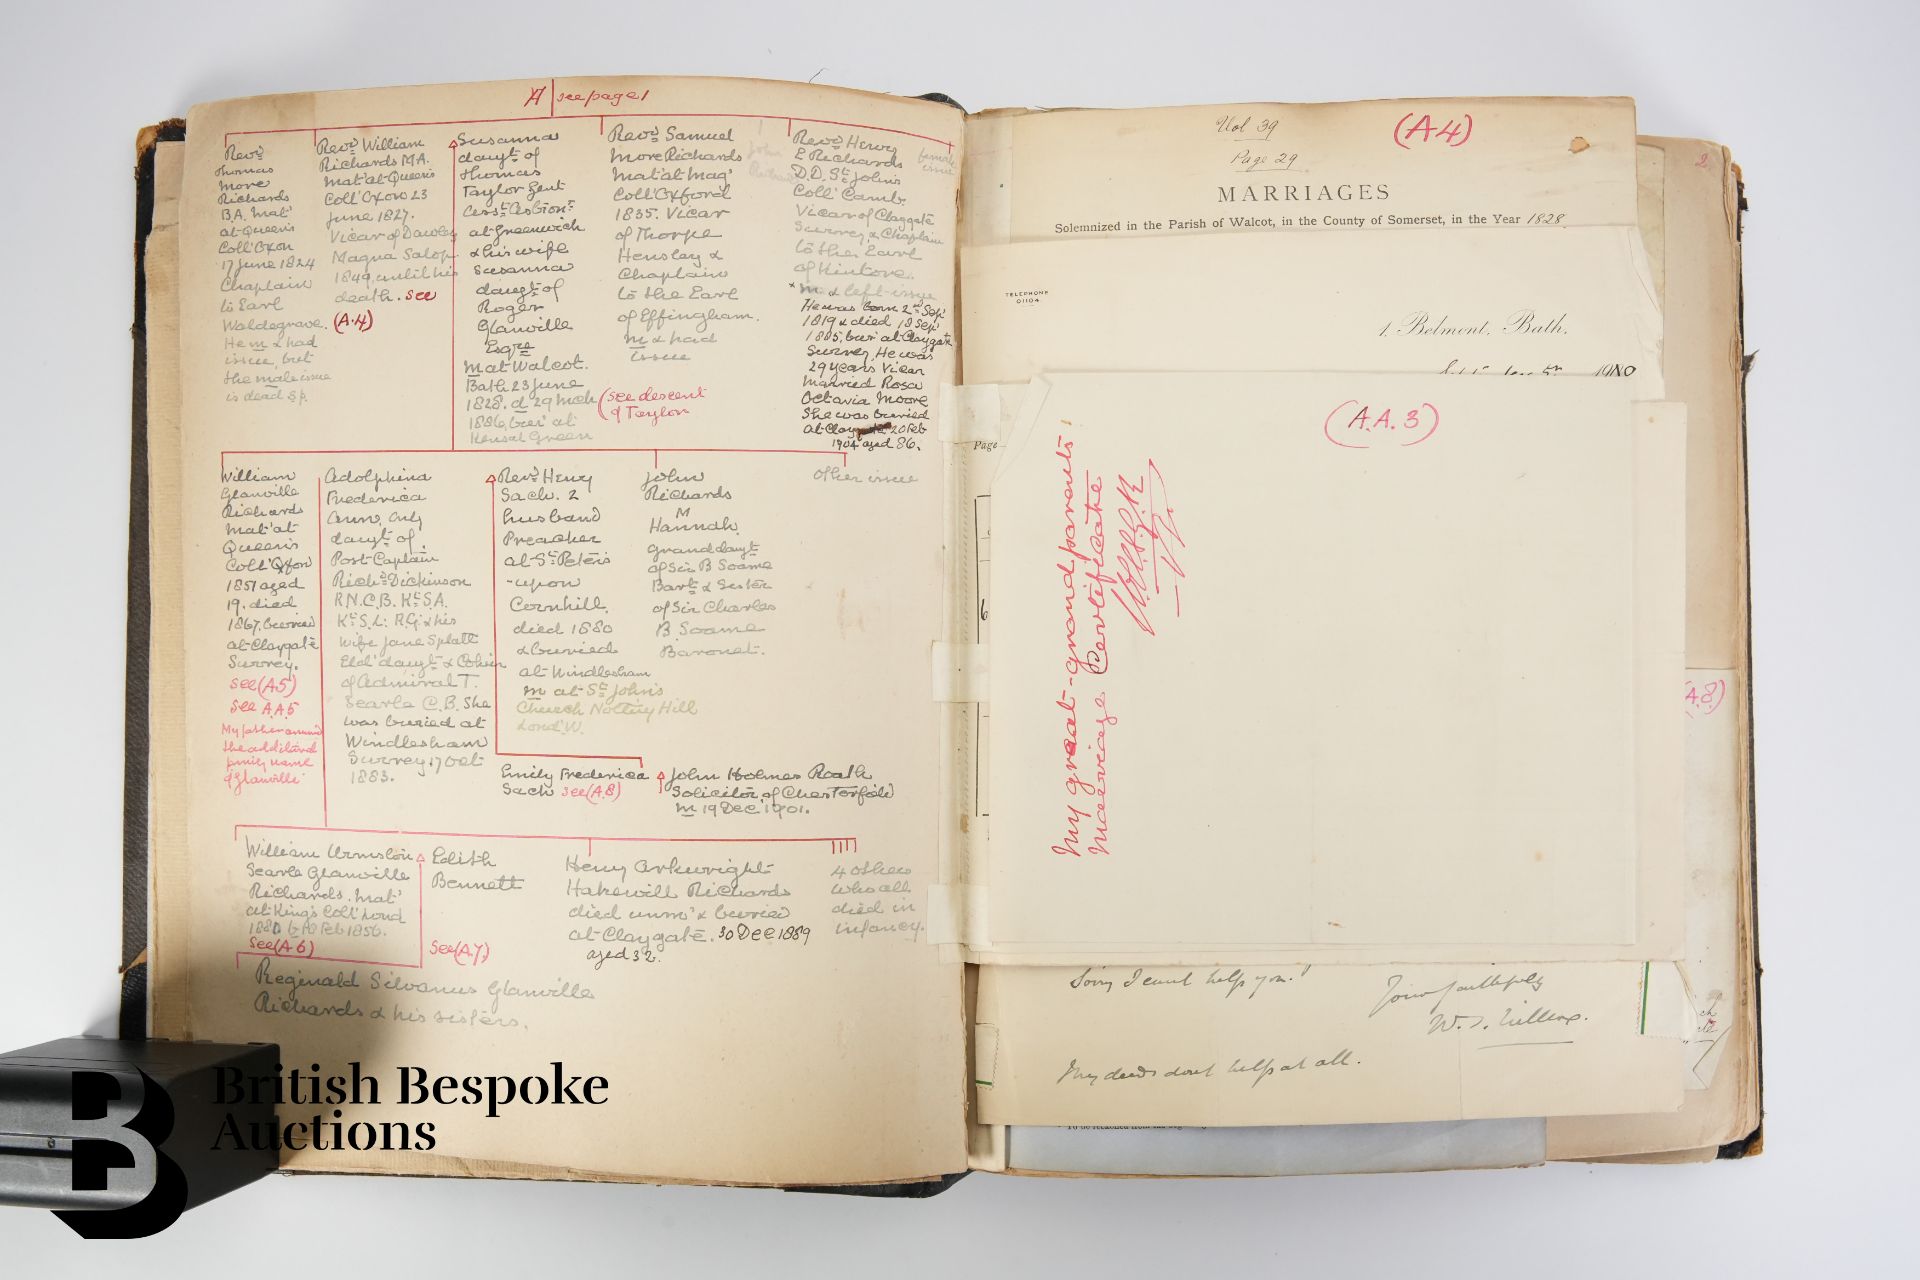 A | see page 1
Revd
Thomas
More
Richards
B.A. Mat'
at Queen's
Coll' Oxon
17 June 1824
Chaplain
to Earl
Waldegrave.
He m & had
issue, but
the male issue
is dead s.p.
Revd William
Richards M.A.
Mat' at Queen's
Coll' Oxon 23
June 1827.
Vicar of Dawley
Magna Salop
1849 until his
death. see
(A.4)
Susanna
daugt of
Thomas
Taylor Gent
at Greenwich
& his wife
Susanna
daugt of
Roger
Glanville
Esqre
m at Walcot.
Bath 23 June
1828. d 29 Mch
1886, bur' at
Kensal Green
(see descent
of Taylor
Revd Samuel
More Richards
Mat' at Mag'
Coll' Oxford
1835. Vicar
of Thorpe
Hensley &
Chaplain
to the Earl
of Effingham.
m & had
issue
Revd Henry
E Richards
D.D. St John's
Coll' Camb.
Vicar of Claygate
Surrey & Chaplain
to the Earl
of Kintore.
* m & left issue
He was born 2nd Sep'
1819 & died 18 Sep'
1885, bur' at Claygate
Surrey, He was
29 years Vicar
Married Rosa
Octavia Moore
She was buried
at Claygate 20 Feb
1904 aged 86.
female
issue
William
Glanville
Richards
Mat' at
Queen's
Coll' Oxfon
1851 aged
19. died
1867, buried
at Claygate
Surrey.
see (A5)
see A.A.5
My father assumed
the additional
family name
of Glanville
Adolphina
Frederica
Ann, only
daugt of
Post-Captain
Richd Dickinson
R.N.C.B. Kt S.A.
Kt S.L: R.G: & his
wife Jane Splatt
Eld' daugt & Coheir
of Admiral T.
Searle C.B. She
was buried at
Windlesham
Surrey 17 Oct
1883.
Revd Henry
Sach. 2
husband
Preacher
at St Peter's
-upon
Cornhill.
died 1880
& buried
at Windlesham
m at St John's
Church Notting Hill
Lond' W.
John
Richards
M
Hannah
granddaugt
of Sir B Soame
Bart & Sister
of Sir Charles
B. Soame
Baronet.
Other issue
Emily Frederica
Sach see (A.8)
John Holmes Roath
Solicitor of Chesterfield
m 19 Dec. 1901.
William Urmston
Searle Glanville
Richards. Mat'
at King's Coll' Lond
see (A.6)
Edith
Bennett
see (A.7)
Henry Arkwright
Hakewill Richards
died unm' & buried
at Claygate. 30 Dec 1889
aged 32.
4 others
who all
died in
infancy.
Reginald Silvanus Glanville
Richards & his sisters.
Vol 39
(A4)
Page 29
MARRIAGES
Solemnized in the Parish of Walcot, in the County of Somerset, in the Year 1828.
TELEPHONE
01104
1, Belmont, Bath,
1940
(A.A.3)
Page
My great-grandparents'
Marriage Certificate
Sorry I can't help you.
Yours faithfully
My deeds dont help at all.
2
A.8)
British Bespoke
Auctions
B